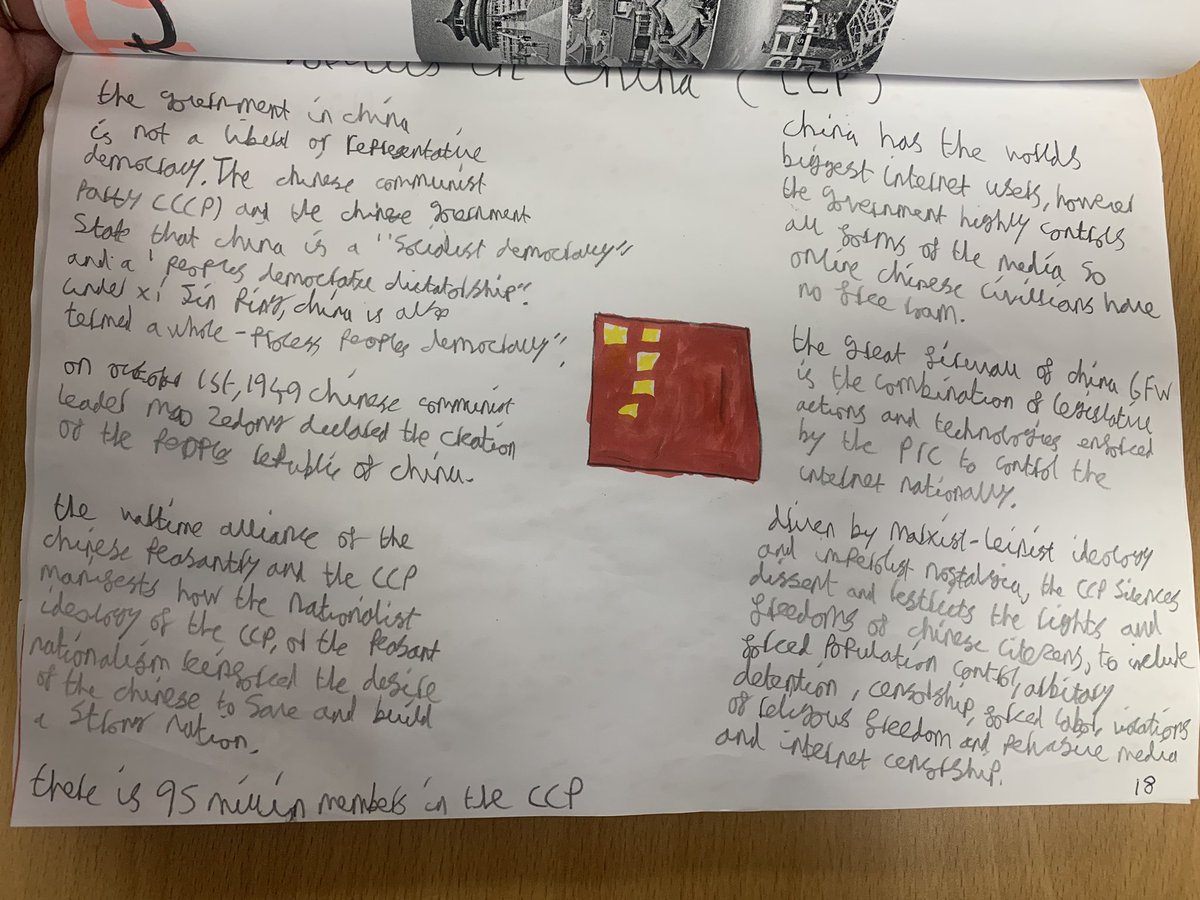 in China (CCP)
the government in china
is not a liberal of representative
democracy. The chinese communist
Party (CCP) and the chinese government
State that china is a "Socialist democracy"
and a "peoples democratic dictatorship".
under xi Jin Ping, china is also
termed a whole-process peoples democracy".
on october 1st, 1949 chinese communist
leader mao Zedong declared the creation
of the peoples republic of china.
the wartime alliance of the
chinese peasantry and the CCP
manifests how the nationalist
ideology of the CCP, or the peasant
nationalism reinforced the desire
of the chinese to save and build
a strong nation.
there is 95 million members in the CCP
china has the worlds
biggest internet users, however
the government highly controls
all forms of the media so
online chinese civillians have
no free roam.
the great firewall of china GFW
is the combination of legislative
actions and technologies enforced
by the PRC to control the
internet nationally.
driven by Marxist-Leinist ideology
and imperalist nostalgia, the CCP silences
dissent and restricts the rights and
freedoms of chinese citezens, to include
forced population control, arbitary
detention, censorship, forced labor, violations
of religous freedom and pervasive media
and internet censorship.
18